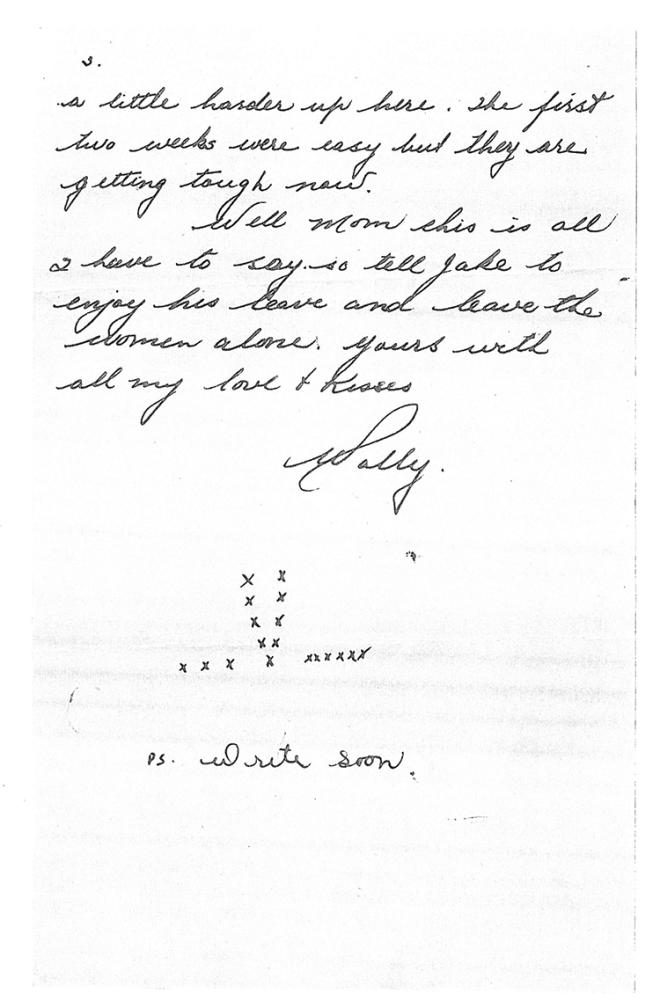 3.
a little harder up here. The first
two weeks were easy but they are
getting tough now.
Well Mom this is all
I have to say so tell Jake to
enjoy his leave and leave the
women alone. Yours with
all my love & Kisses
Wally.
x x
x x
x x
x x
x x x x xxxxxx
PS. Write soon.